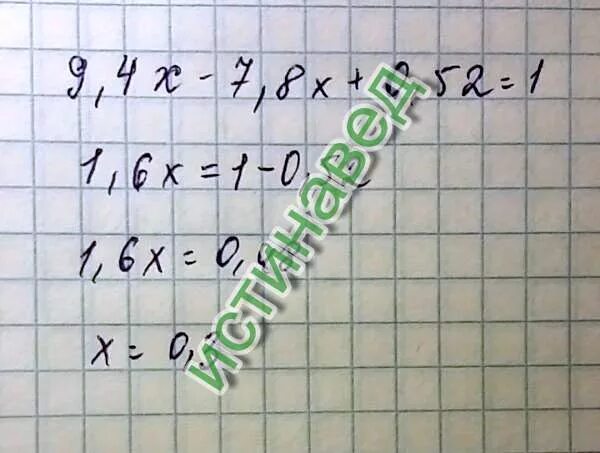 9,4x - 7,8x + 0,52 = 1
1,6x = 1 - 0,
1,6x = 0,48
x = 0,3
истинавед